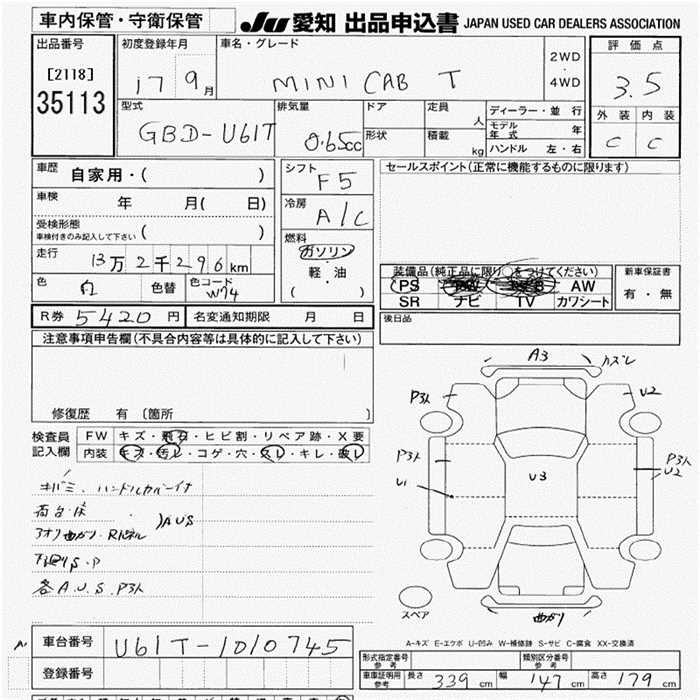 車内保管・守衛保管
JU 愛知 出品申込書 JAPAN USED CAR DEALERS ASSOCIATION
出品番号
[2118]
35113
初度登録年月
17 9月
車名・グレード
MINI CAB T
2WD
・
4WD
評価点
3.5
外装 内装
C C
型式
GBD-U61T
排気量
0.65cc
ドア
形状
定員
人
積載
kg
ディーラー・並行
モデル年式 年
ハンドル 左・右
車歴
自家用・( )
車検
年 月( 日)
受検形態
車検付きのみ記入して下さい ( )
走行
13万2千296km
色
白
色替
色コード
W74
シフト
F5
冷房
A/C
燃料
ガソリン
・
軽・油
( )
セールスポイント(正常に機能するものに限ります)
装備品(純正品に限り○をつけてください)
PS AW
SR ナビ TV カワシート
新車保証書
有・無
後日品
R券 5420円
名変通知期限 月 日
注意事項申告欄(不具合内容等は具体的に記入して下さい)
修復歴 有 〔箇所 〕
検査員
記入欄
FW キズ・飛石・ヒビ割・リペア跡・X要
内装 キズ・汚レ・コゲ・穴・スレ・キレ・破レ
キバミ、ハンドルカバー付
荷台・床
アオリ曲がり・Rパネル
AUS
下回りS.P
各A.U.S.P3入
A3
カズレ
P3入
U2
P3入
U1
U3
P3入
U2
スペア
曲がり
A-キズ E-エクボ U-凹み W-補修跡 S-サビ C-腐食 XX-交換済
車台番号
U61T-1010745
登録番号
形式指定番号
参考
類別区分番号
参考
車庫証明用
参考
長さ 339cm
幅 147cm
高さ 179cm